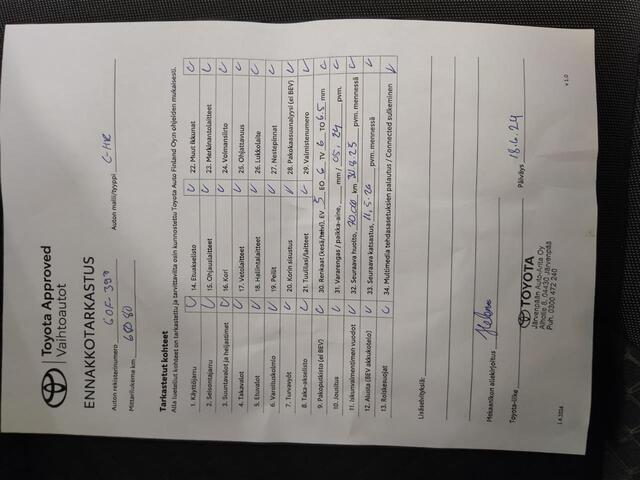 Toyota Approved
Vaihtoautot
ENNAKKOTARKASTUS
Auton rekisterinumero GOF-399 Auton malli/tyyppi C-HR
Mittarilukema km 68080
Tarkastetut kohteet
Alla luetellut kohteet on tarkastettu ja tarvittavilta osin kunnostettu Toyota Auto Finland Oy:n ohjeiden mukaisesti.
1. Käyttöjarru ✓ 14. Etuakselisto ✓ 22. Muut ikkunat ✓
2. Seisontajarru ✓ 15. Ohjauslaitteet ✓ 23. Merkinantolaitteet ✓
3. Suuntavalot ja heijastimet ✓ 16. Kori ✓ 24. Voimansiirto ✓
4. Takavalot ✓ 17. Vetolaitteet ✓ 25. Ohjattavuus ✓
5. Etuvalot ✓ 18. Hallintalaitteet ✓ 26. Lukkolaite ✓
6. Varoituskolmio ✓ 19. Peilit ✓ 27. Nestepinnat ✓
7. Turvavyöt ✓ 20. Korin sisustus ✓ 28. Pakokaasuanalyysi (ei BEV) ✓
8. Taka-akselisto ✓ 21. Tuulilasi/laitteet ✓ 29. Valmistenumero ✓
9. Pakoputkisto (ei BEV) ✓ 30. Renkaat (kesä/talvi), EV 5 EO 6 TV 6 TO 6.5 mm ✓
10. Jousitus ✓ 31. Vararengas / paikka-aine, mm / 05.29 pvm. ✓
11. Iskunvaimentimien vuodot ✓ 32. Seuraava huolto, km 30.8.25 pvm. mennessä ✓
12. Alusta (BEV akkukotelo) ✓ 33. Seuraava katsastus, 11.5.26 pvm. mennessä ✓
13. Roiskesuojat ✓ 34. Multimedia tehdasasetuksien palautus / Connected sulkeminen ✓
Lisäselvityksiä:
Mekaanikon allekirjoitus
Toyota-liike TOYOTA Päiväys 18.6.24
Järvenpään Auto-Arita Oy
Alhotie 8, 04430 Järvenpää
Puh. 0300 472 240
1.4.2024 v 1.0